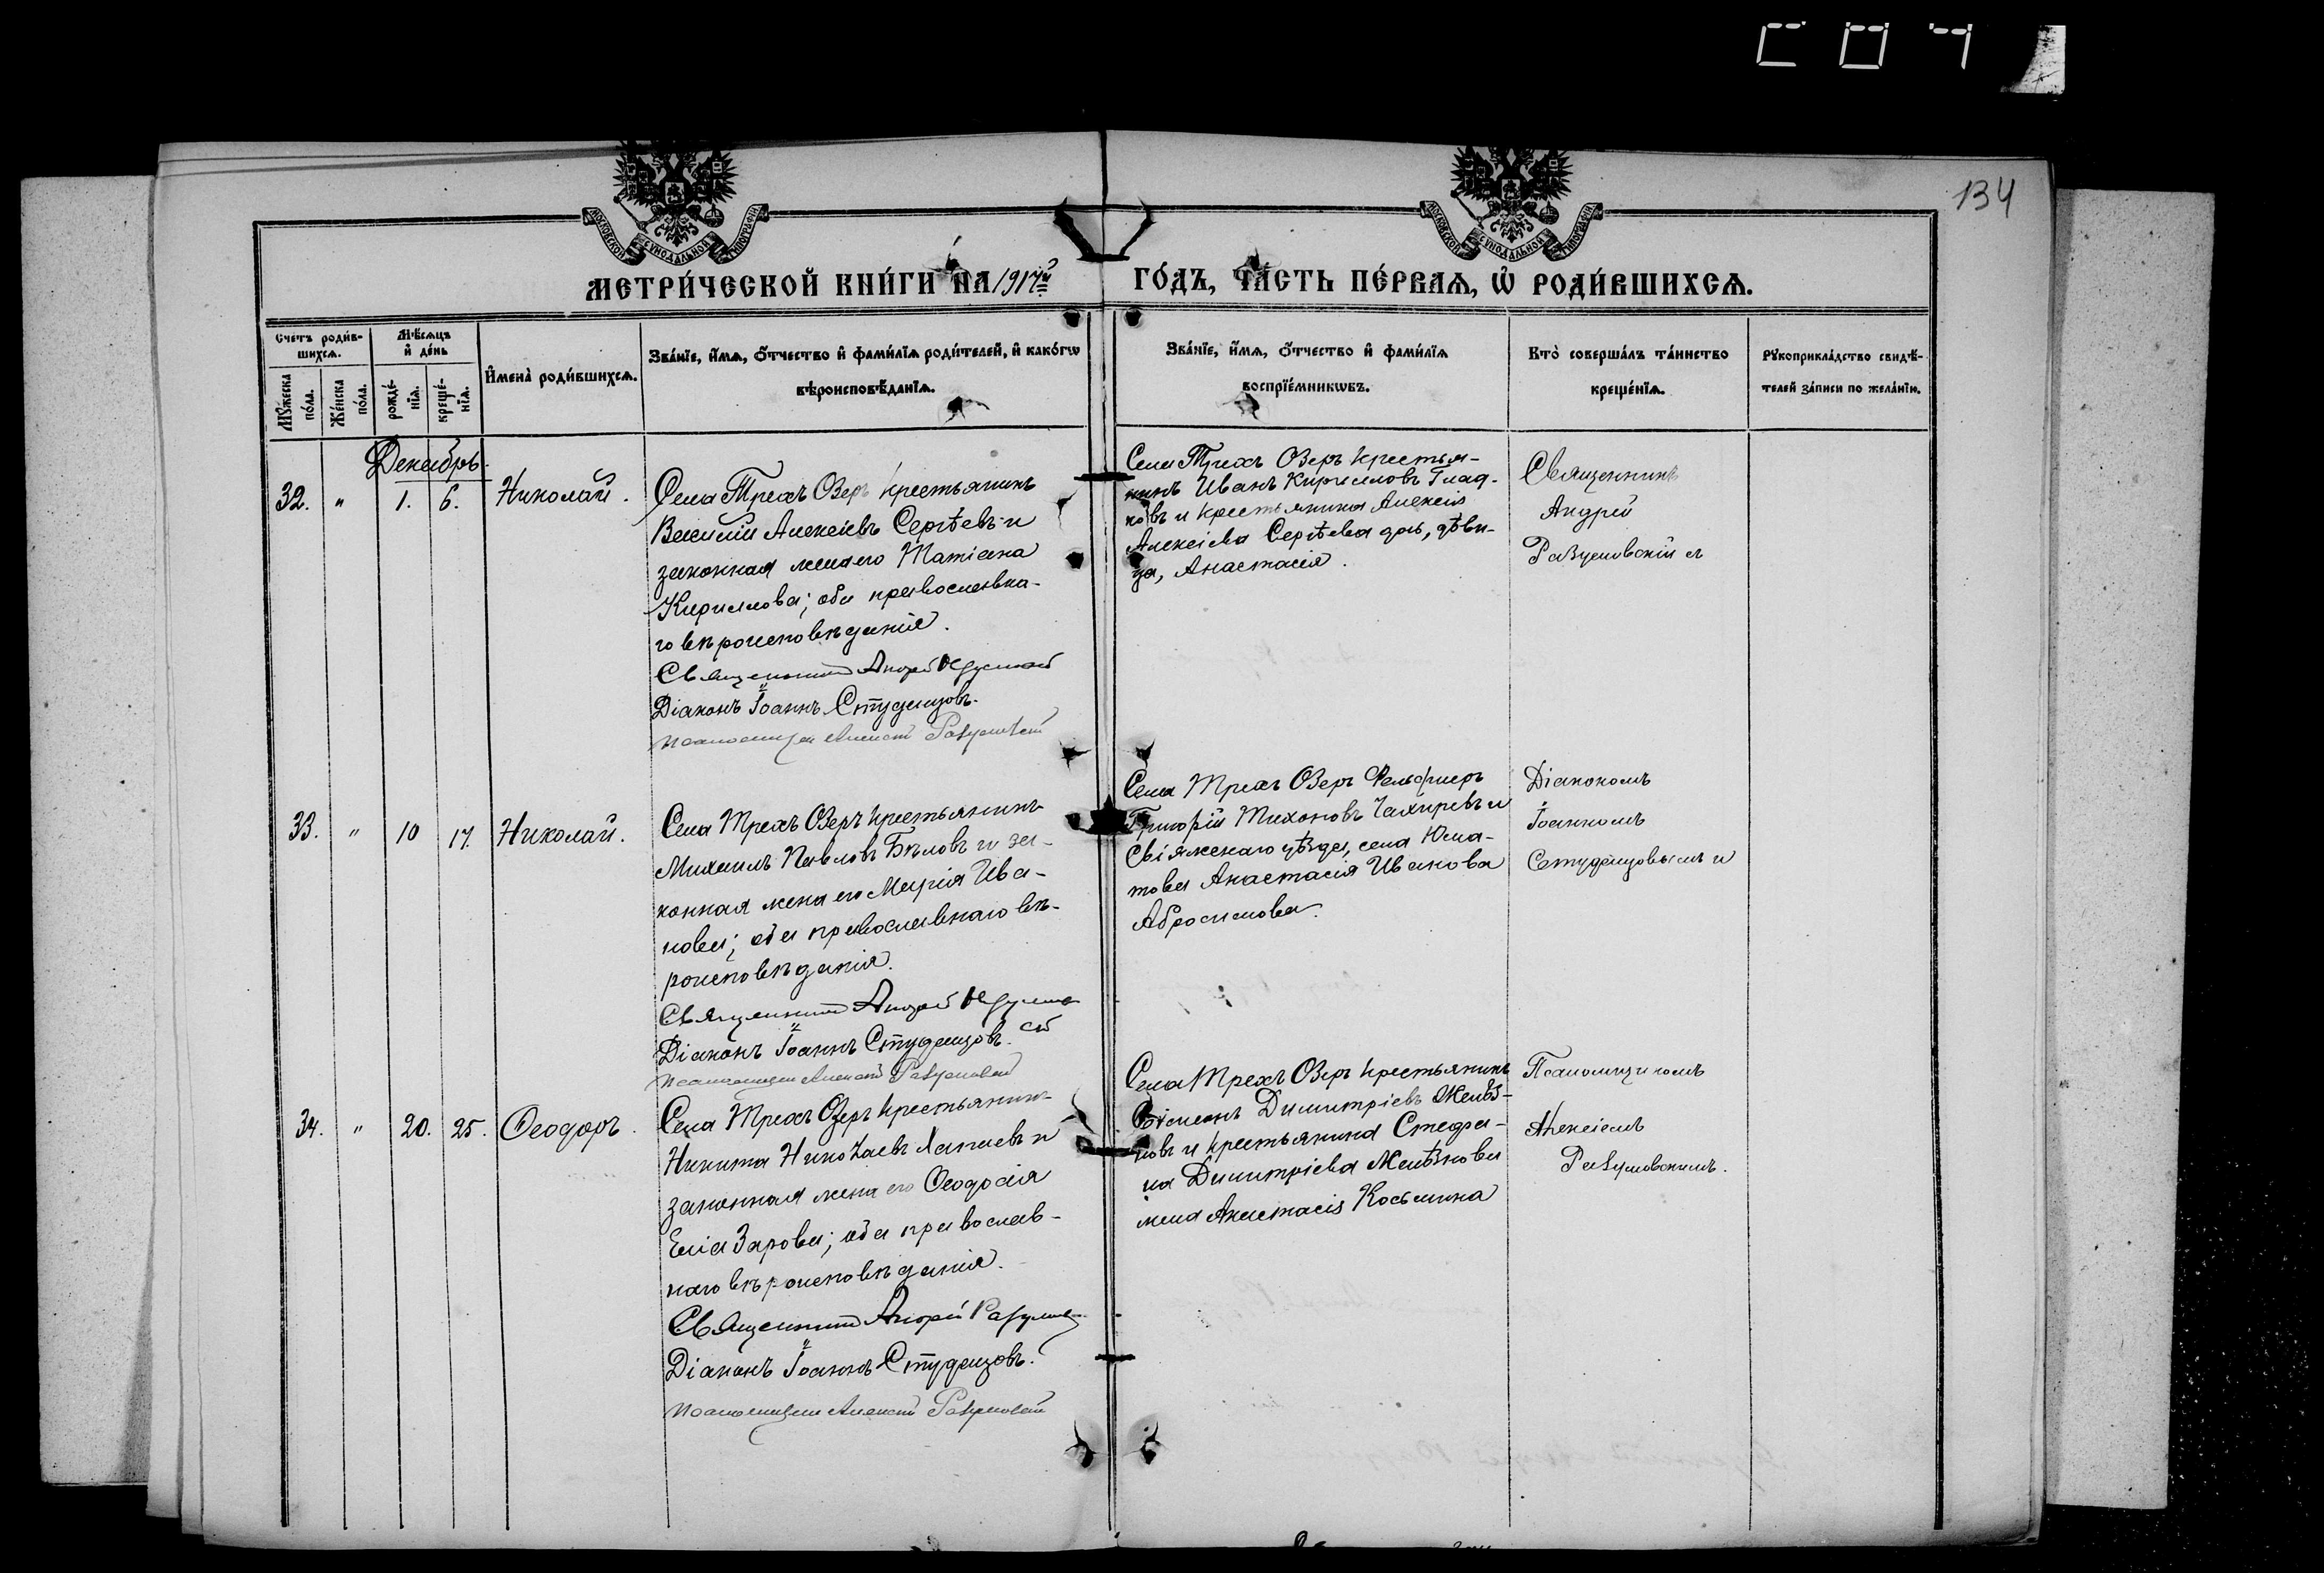 134
МОСКОВСКОЙ СѴНОДАЛЬНОЙ ТИПОГРАФІИ
МОСКОВСКОЙ СѴНОДАЛЬНОЙ ТИПОГРАФІИ
МЕТРИ́ЧЕСКОЙ КНИ́ГИ НА 1917й ГО́ДЪ, ЧА́СТЬ ПЕ́РВАѦ, Ѡ҆ РОДИ́ВШИХСѦ.
Счетъ роди́в-
шихсѧ.
Мꙋ́жеска
по́ла.
Же́нска
по́ла.
Мѣ́сѧцъ
и҆ де́нь
рожде́-
нїѧ.
креще́-
нїѧ.
И҆мена̀ роди́вшихсѧ.
Зва́нїе, и҆́мѧ, ѻ҆́тчество и҆ фами́лїѧ роди́телей, и҆ како́гѡ
вѣроисповѣ́данїѧ.
Зва́нїе, и҆́мѧ, ѻ҆́тчество и҆ фами́лїѧ
воспрїе́мникѡвъ.
Кто̀ соверша́лъ та́инство
креще́нїѧ.
Рꙋкоприкла́дство свидѣ́-
телей за́писи по жела́нїю.
Декабрь.
32. " 1. 6. Николай.
Села Трехъ Озеръ крестьянинъ
Василій Алексіевъ Сергѣевъ и
законная жена его Татіана
Кириллова; оба православна-
го вѣроисповѣданія.
Священникъ Андрей
Діаконъ Іоаннъ Студенцовъ.
Псаломщикъ Алексій Разумовскій
Села Трехъ Озеръ крестья-
нинъ Иванъ Кирилловъ Глад-
ковъ и крестьянина Алексія
Алексіева Сергѣева дочь, дѣви-
ца, Анастасія.
Священникъ
Андрей
Разумовскій съ
33. " 10 17. Николай.
Села Трехъ Озеръ крестьянинъ
Михаилъ Павловъ Бѣловъ и за-
конная жена его Марія Ива-
нова; оба православнаго вѣ-
роисповѣданія.
Священникъ Андрей
Діаконъ Іоаннъ Студенцовъ.
Псаломщикъ Алексій Разумовскій
Села Трехъ Озеръ Фельдшеръ
Григорій Тихоновъ Чахиревъ и
Свіяжскаго уѣзда, села Юма-
това Анастасія Иванова
Абросимова.
Діакономъ
Іоанномъ
Студенцовымъ и
34. " 20. 25. Ѳеодоръ.
Села Трехъ Озеръ крестьянинъ
Никита Николаевъ Лапаевъ и
законная жена его Ѳеодосія
Еліазарова; оба православ-
наго вѣроисповѣданія.
Священникъ Андрей
Діаконъ Іоаннъ Студенцовъ.
Псаломщикъ Алексій Разумовскій
Села Трехъ Озеръ крестьянинъ
Димитріевъ
и крестьянина Стефа-
на Димитріева
жена Анастасія Косьмина
Псаломщикомъ
Алексіемъ
Разумовскимъ.